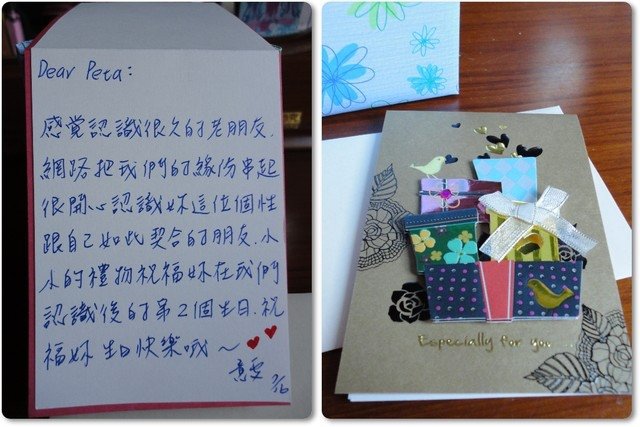 Dear Peta:
感覺認識很久的老朋友.
網路把我們的緣份串起
很開心認識妳這位個性
跟自己如此契合的朋友.小
小的禮物祝福妳在我們
認識後的第2個生日.祝
福妳 生日快樂哦~
意雯
Especially for you...